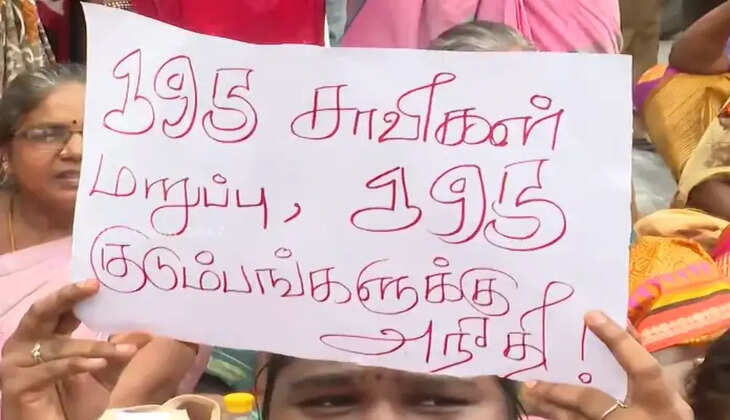 195 சாவிகள்
மாறுப்பு, 195
குடும்பங்களுக்கு
அநீதி!